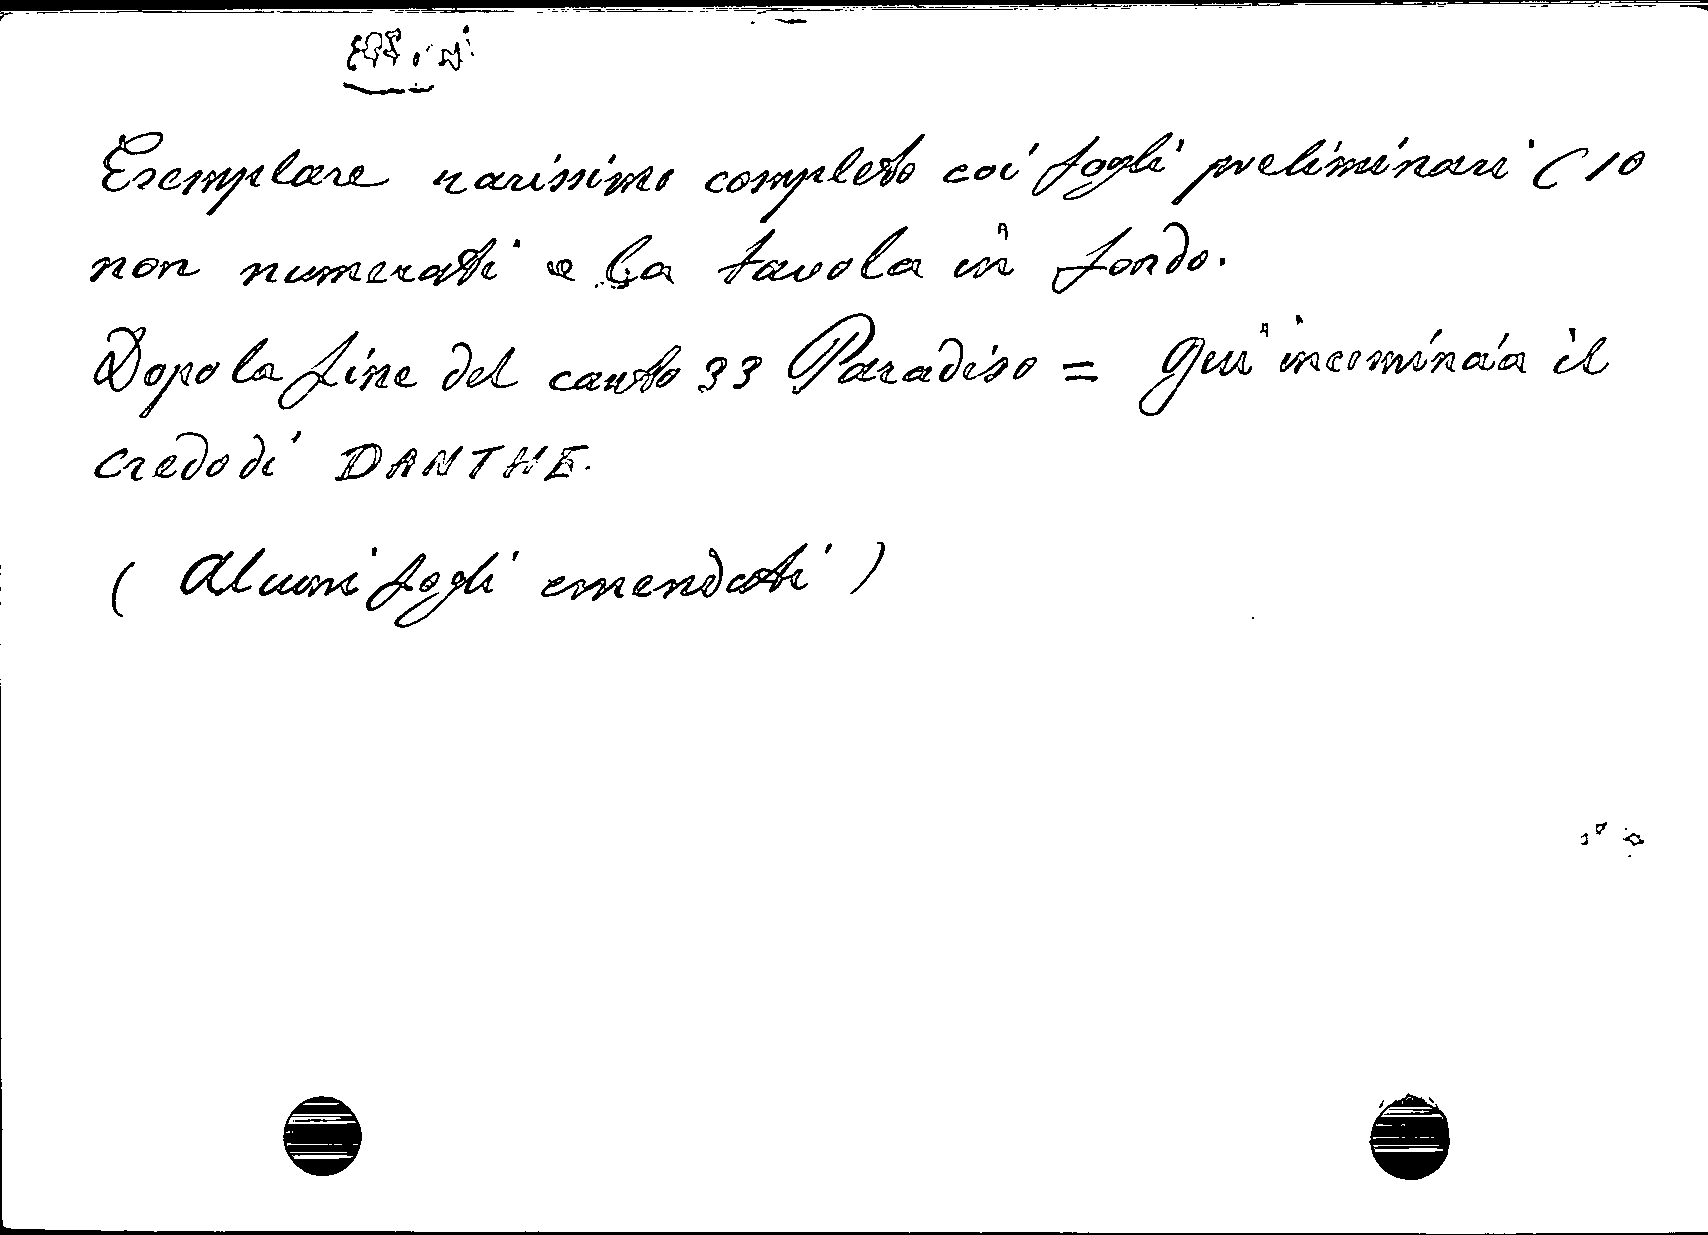 Esemplare rarissimo completo coi fogli preliminari (10
non numerati e la tavola in fondo.
Dopo la fine del canto 33 Paradiso = Qui incomincia il
credo di DANTHE.
(Alcuni fogli emendati)